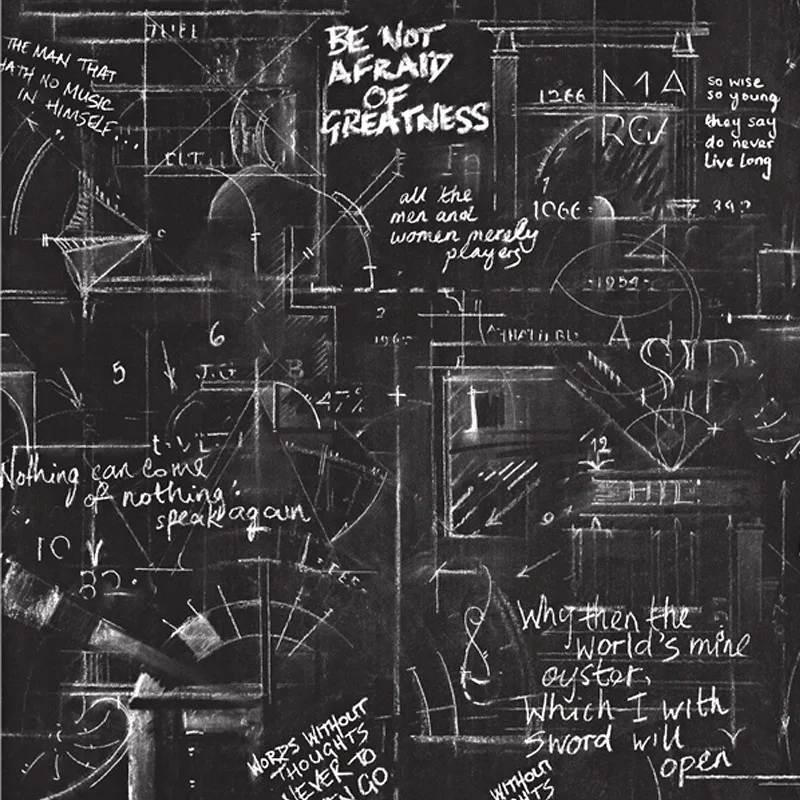 THE MAN THAT
HATH NO MUSIC
IN HIMSELF...
BE NOT
AFRAID
OF
GREATNESS
so wise
so young
they say
do never
live long
1266
1066
all the
men and
women merely
players
1954
6
5
A
B
12
Nothing can come
of nothing:
speak again
10
Why then the
world's mine
oyster,
Which I with
sword will
open
WORDS WITHOUT
THOUGHTS
NEVER TO
GO
WITHOUT